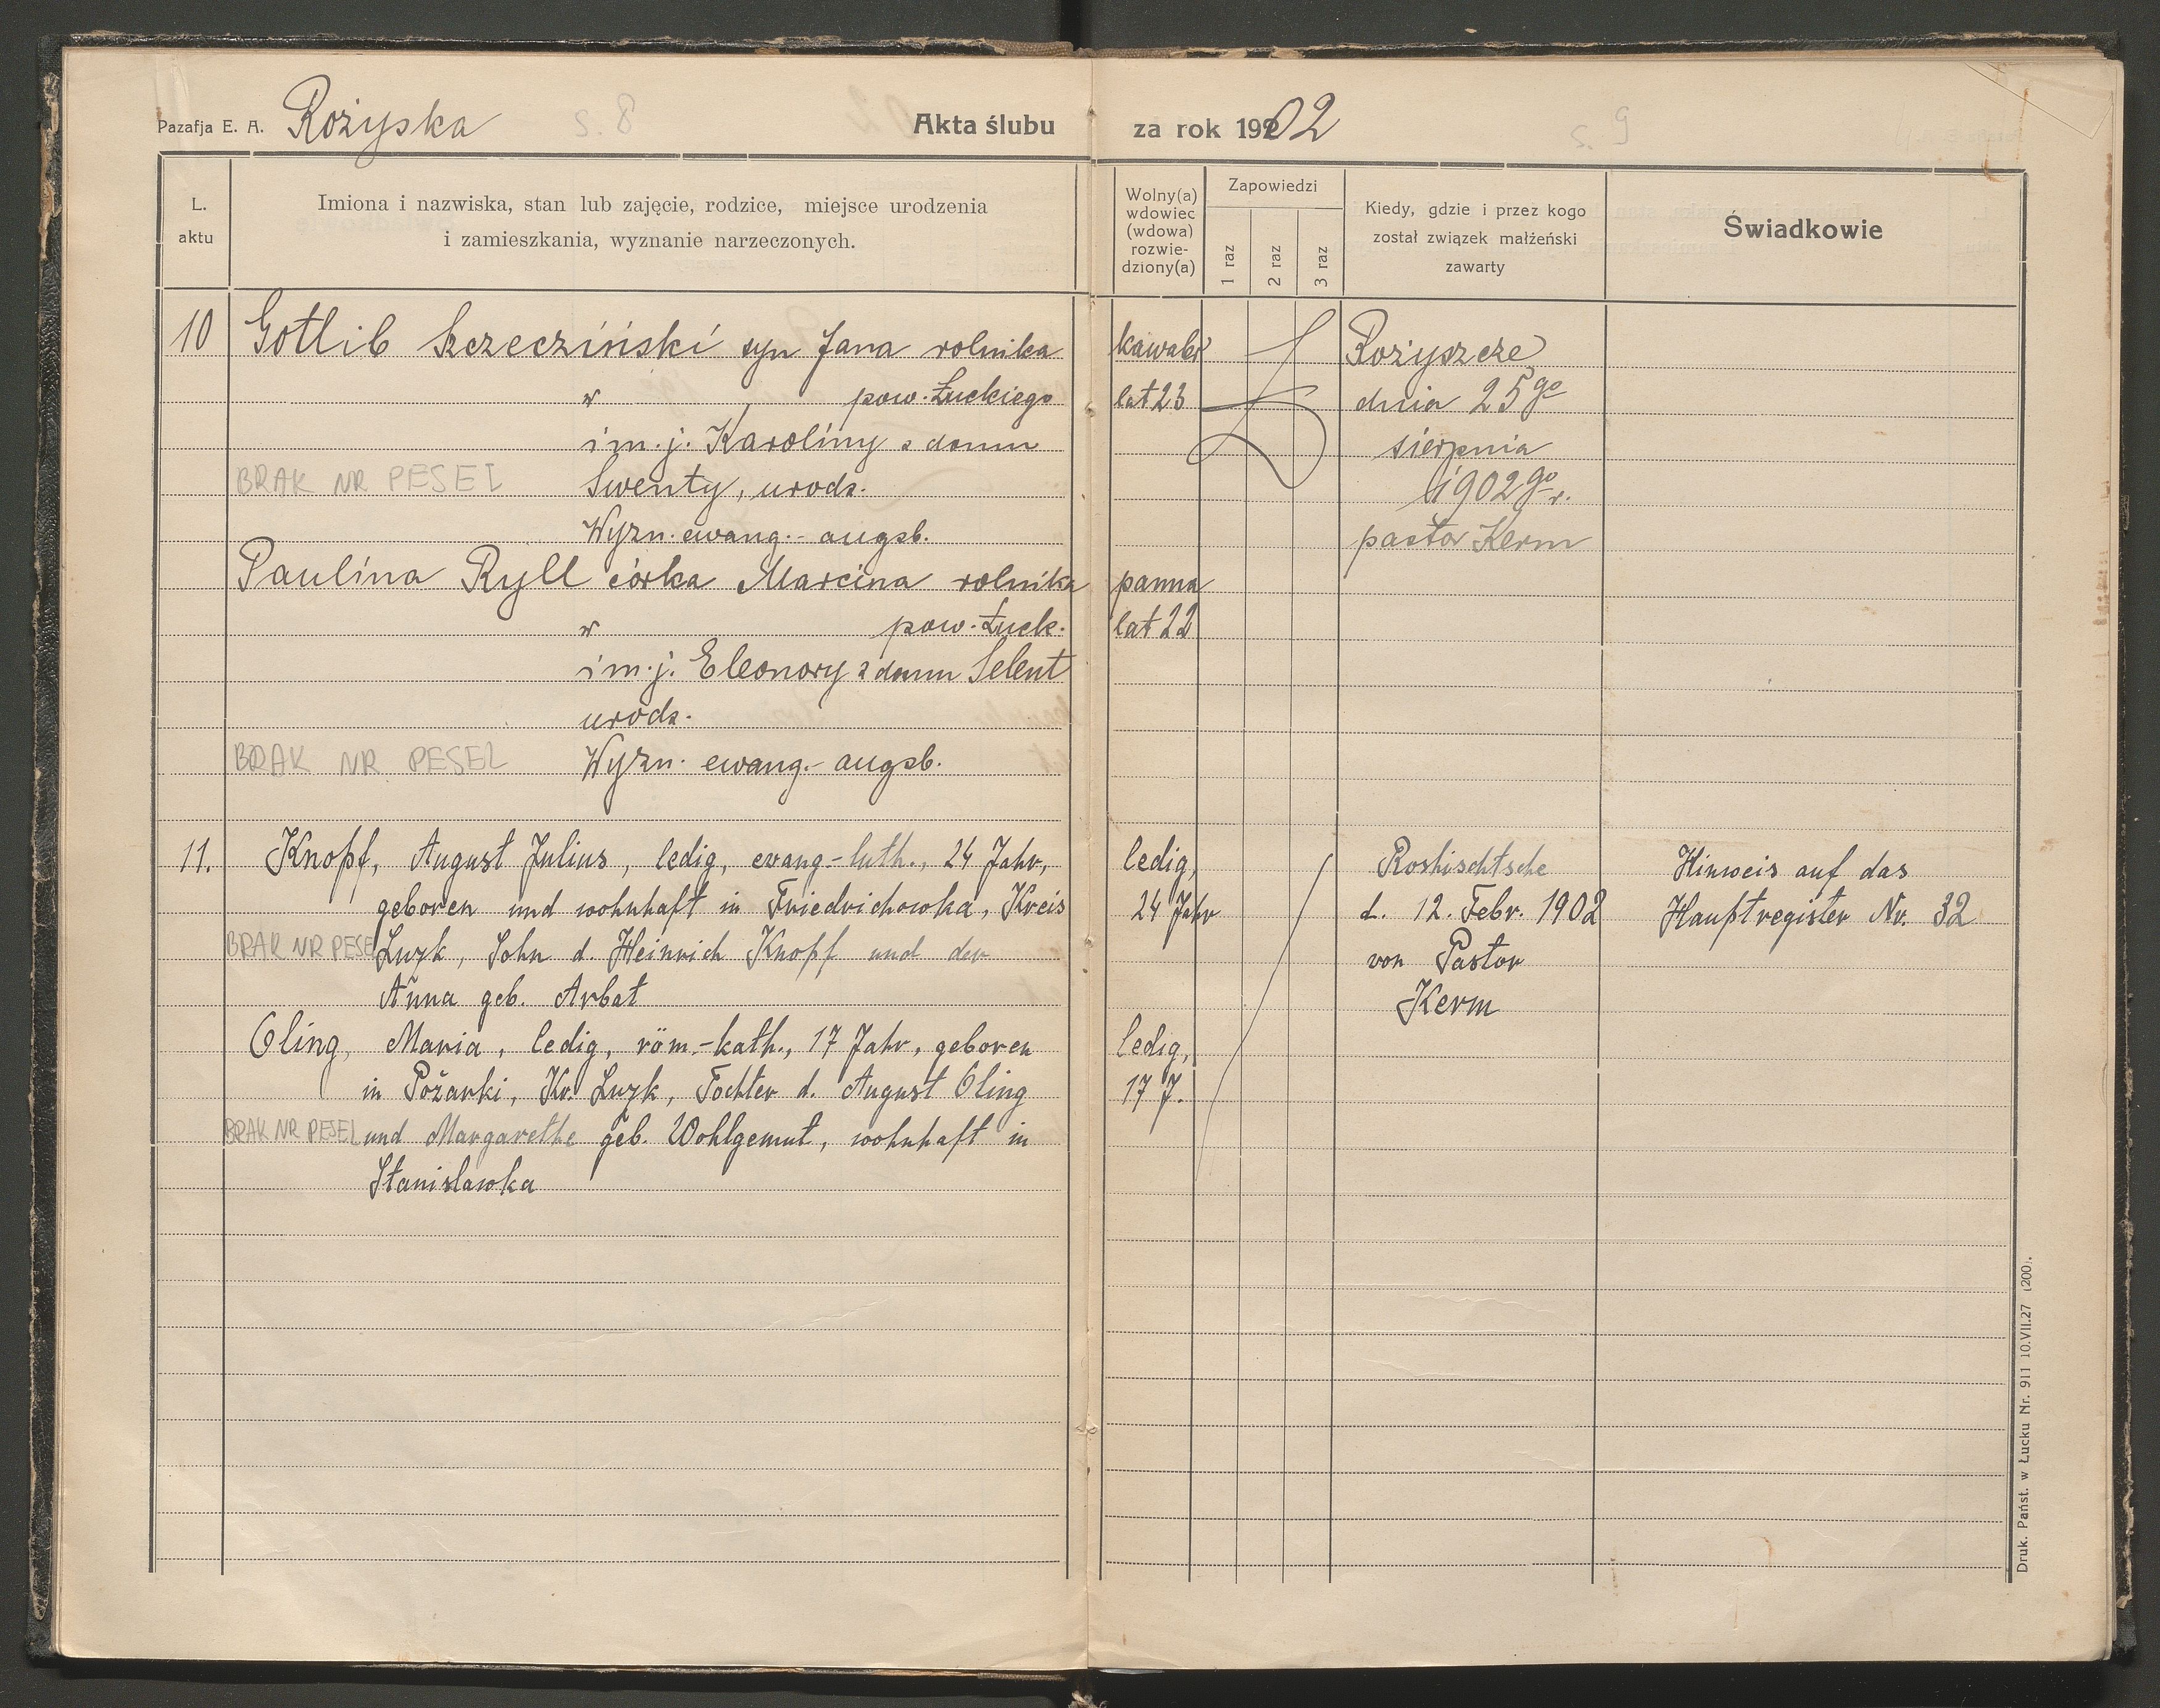 Pazafja E. A. Rożyska s. 8 Akta ślubu
za rok 19202 s. 9
L. aktu
Imiona i nazwiska, stan lub zajęcie, rodzice, miejsce urodzenia
i zamieszkania, wyznanie narzeczonych.
Wolny(a)
wdowiec
(wdowa)
rozwie-
dziony(a)
Zapowiedzi
1 raz
2 raz
3 raz
Kiedy, gdzie i przez kogo
został związek małżeński
zawarty
Świadkowie
10 Gotlib Szczeziński syn Jana rolnika
w pow. Łuckiego
i m. j. Karoliny z domu
BRAK NR PESEL Swenty, urodz.
Wyzn. ewang.- augsb.
Paulina Ryll córka Marcina rolnika
w pow. Łuck.
i m. j. Eleonory z domu Selent
urodz.
BRAK NR PESEL Wyzn. ewang.- augsb.
kawaler
lat 23
panna
lat 22
Rożyszcze
dnia 25go
sierpnia
1902go r.
pastor Kerm
11. Knopf, August Julius, ledig, evang.-luth., 24 Jahr,
geboren und wohnhaft in Friedrichowka, Kreis
BRAK NR PESEL Luzk, Sohn d. Heinrich Knopf und der
Anna geb. Arbat
Oling, Maria, ledig, röm.-kath., 17 Jahr, geboren
in Požarki, Kr. Luzk, Tochter d. August Oling
BRAK NR PESEL und Margarethe geb. Wohlgemut, wohnhaft in
Stanislawka
ledig,
24 Jahr
ledig,
17 J.
Roshischtsche
d. 12. Febr. 1902
von Pastor
Kerm
Hinweis auf das
Hauptregister Nr. 32
Druk. Państ. w Łucku Nr. 911 10.VII.27 1200.